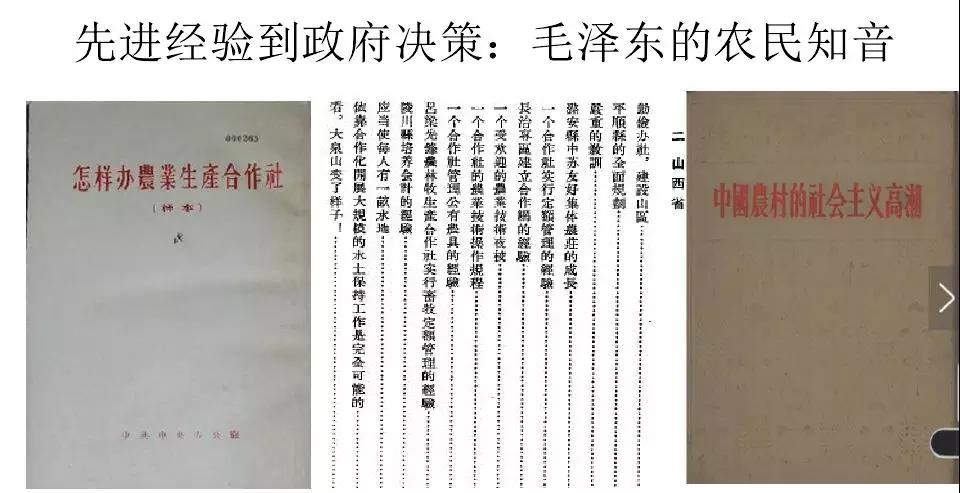 先进经验到政府决策：毛泽东的农民知音
000265
怎样办農業生產合作社
(样本)
中共中央办公廳
二 山西省
勤儉办社，建設山區
平順縣的全面規劃
嚴重的教訓
潞安縣中苏友好集体農庄的成長
一个合作社实行定額管理的經驗
長治專區建立合作網的經驗
一个受欢迎的農業技術夜校
一个合作社的農業技術操作規程
一个合作社管理公有農具的經驗
農林牧生產合作社实行畜牧定額管理的經驗
陵川縣培养会計的經驗
应当使每人有一畝水地
依靠合作化開展大規模的水土保持工作是完全可能的
看，大泉山变了样子！
中國農村的社会主义高潮